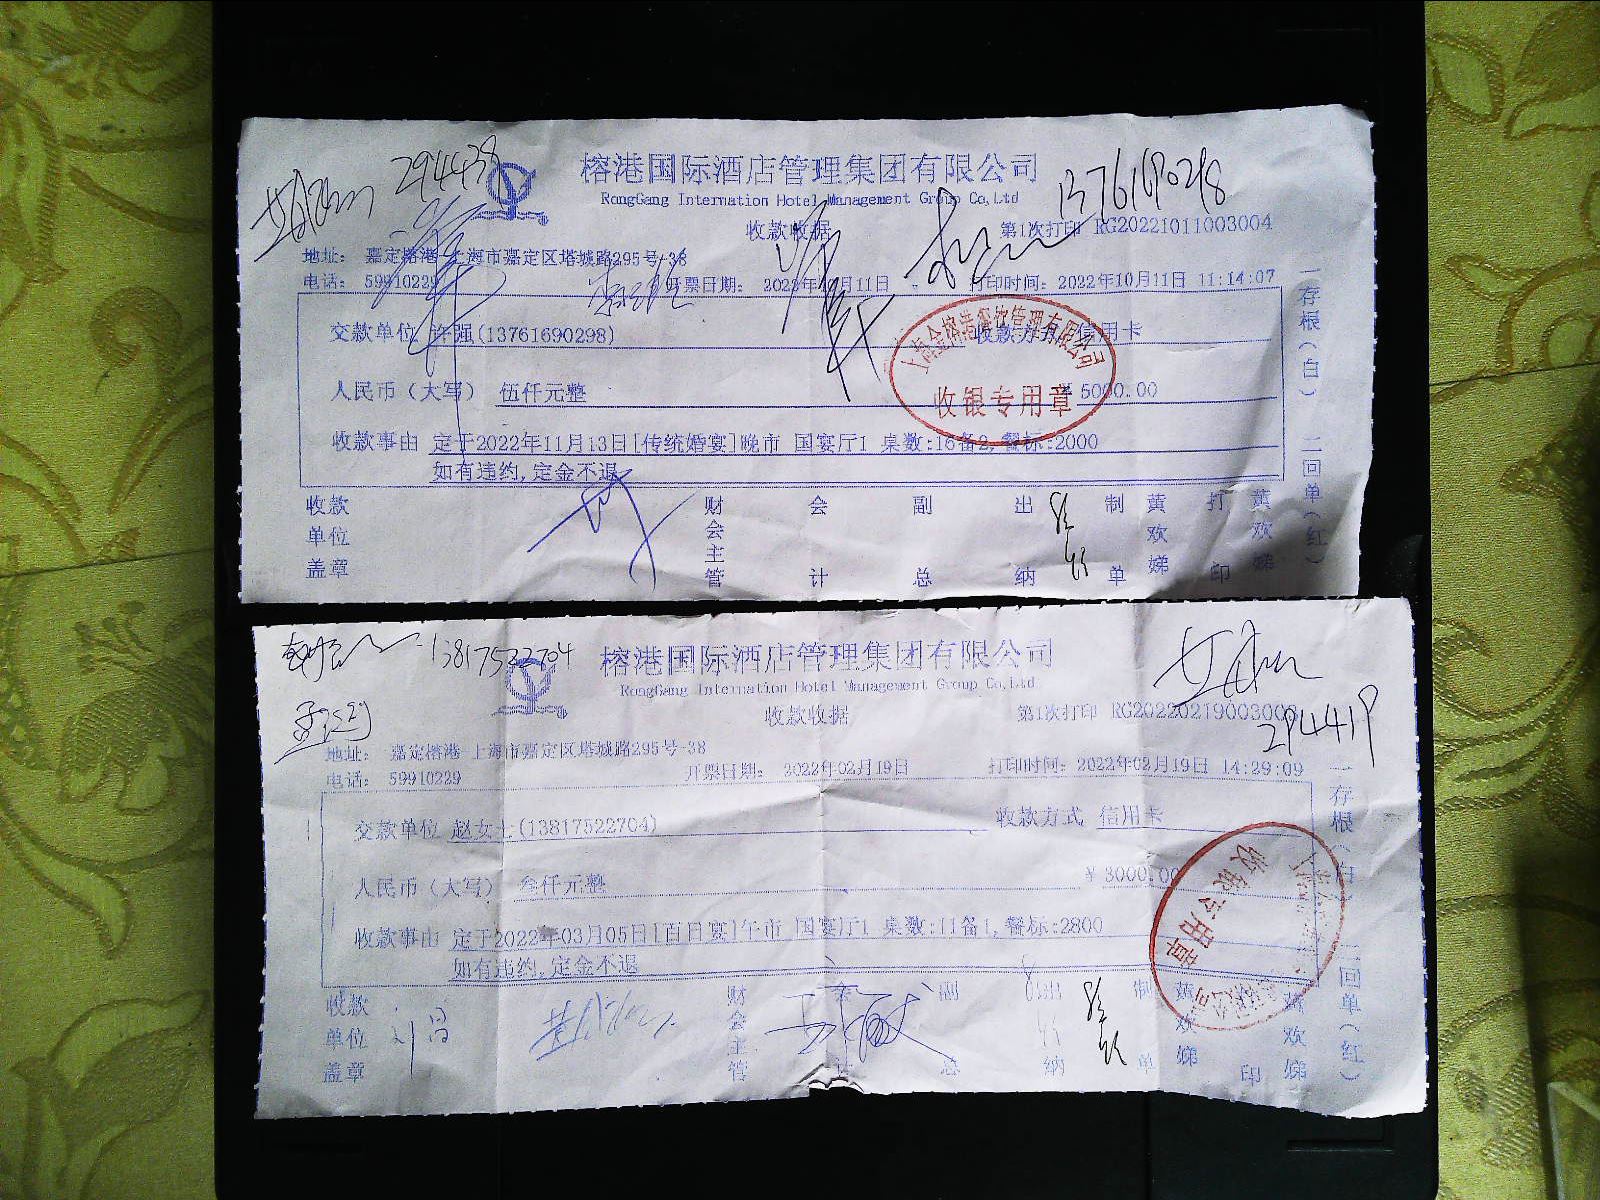 294438
榕港国际酒店管理集团有限公司
13761690298
RongGang Internation Hotel Management Group Co,Ltd
收款收据
第1次打印 RG20221011003004
地址： 嘉定榕港 上海市嘉定区塔城路295号-38
电话： 59910229 开票日期： 2022年10月11日 打印时间：2022年10月11日 11:14:07
交款单位 许强(13761690298) 收款方式 信用卡
人民币（大写） 伍仟元整 ¥ 5000.00
收款事由 定于2022年11月13日[传统婚宴]晚市 国宴厅1 桌数:16备2,餐标:2000
如有违约,定金不退
收款单位盖章 财会主管 会计 副总 出纳 制单 黄欢娣 打印 黄欢娣
一存根（白） 二回单（红）
上海金榕港餐饮管理有限公司
收银专用章
13817522704
榕港国际酒店管理集团有限公司
RongGang Internation Hotel Management Group Co,Ltd
收款收据
第1次打印 RG20220219003003
294419
地址： 嘉定榕港 上海市嘉定区塔城路295号-38
电话： 59910229 开票日期： 2022年02月19日 打印时间：2022年02月19日 14:29:09
交款单位 赵女士(13817522704) 收款方式 信用卡
人民币（大写） 叁仟元整 ¥ 3000.00
收款事由 定于2022年03月05日[百日宴]午市 国宴厅1 桌数:11备1,餐标:2800
如有违约,定金不退
收款单位盖章 财会主管 会计 副总 出纳 制单 黄欢娣 打印 黄欢娣
一存根（白） 二回单（红）
收银专用章